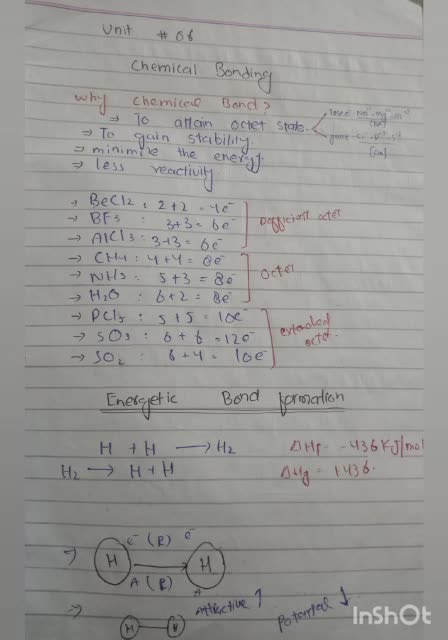 Unit # 06
Chemical Bonding
Why chemical Bond?
⇒ To attain octet state.
⇒ To gain stability.
⇒ minimize the energy.
⇒ less reactivity
→ BeCl2 : 2+2 = 4e⁻
→ BF3 : 3+3 = 6e⁻
→ AlCl3 : 3+3 = 6e⁻
Defficient octet
→ CH4 : 4+4 = 8e⁻
→ NH3 : 5+3 = 8e⁻
→ H2O : 6+2 = 8e⁻
Octet
→ PCl5 : 5+5 = 10e⁻
→ SO3 : 6+6 = 12e⁻
→ SO2 : 6+4 = 10e⁻
extended octet.
Energetic Bond formation
H + H → H2 ΔHf = -436 KJ/mol
H2 → H + H = +436.
⇒ H e⁻ (R) e⁻ H
A (R)
⇒ H H Attractive ↑ Potential ↓
InShOt